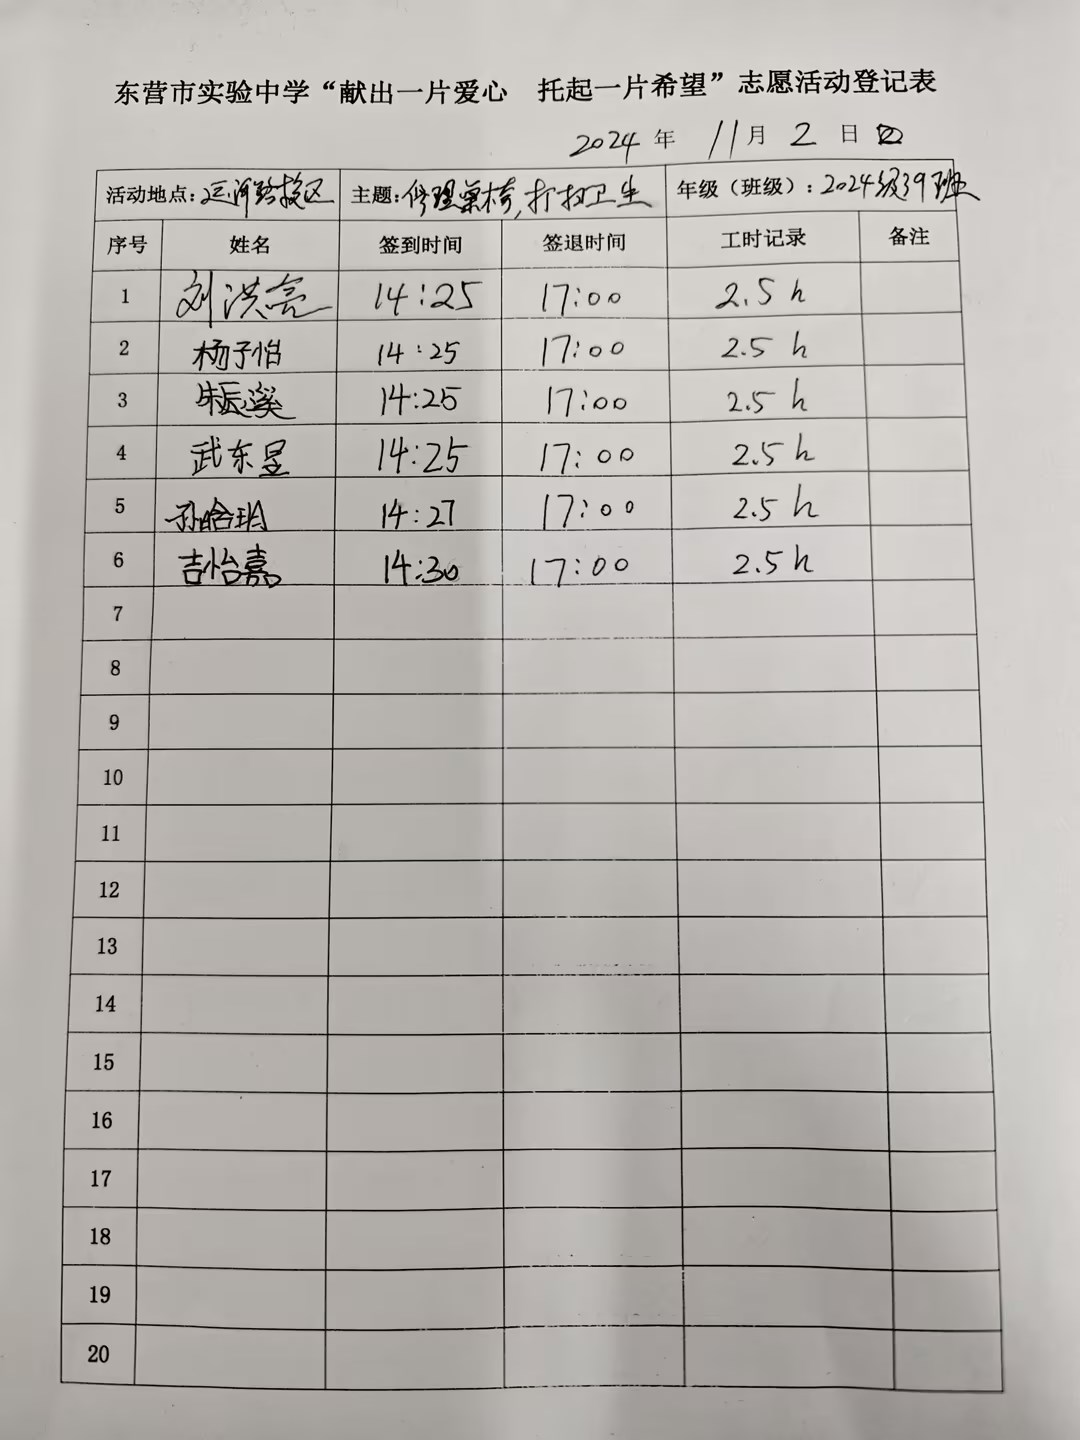 东营市实验中学“献出一片爱心 托起一片希望”志愿活动登记表
2024 年 11 月 2 日
活动地点：运河路校区 主题：修理桌椅，打扫卫生 年级（班级）：2024级39班
序号 姓名 签到时间 签退时间 工时记录 备注
1 刘洪亮 14:25 17:00 2.5 h
2 杨子怡 14:25 17:00 2.5 h
3 朱辰溪 14:25 17:00 2.5 h
4 武东昱 14:25 17:00 2.5 h
5 孙晗玥 14:27 17:00 2.5 h
6 吉怡嘉 14:30 17:00 2.5 h
7
8
9
10
11
12
13
14
15
16
17
18
19
20